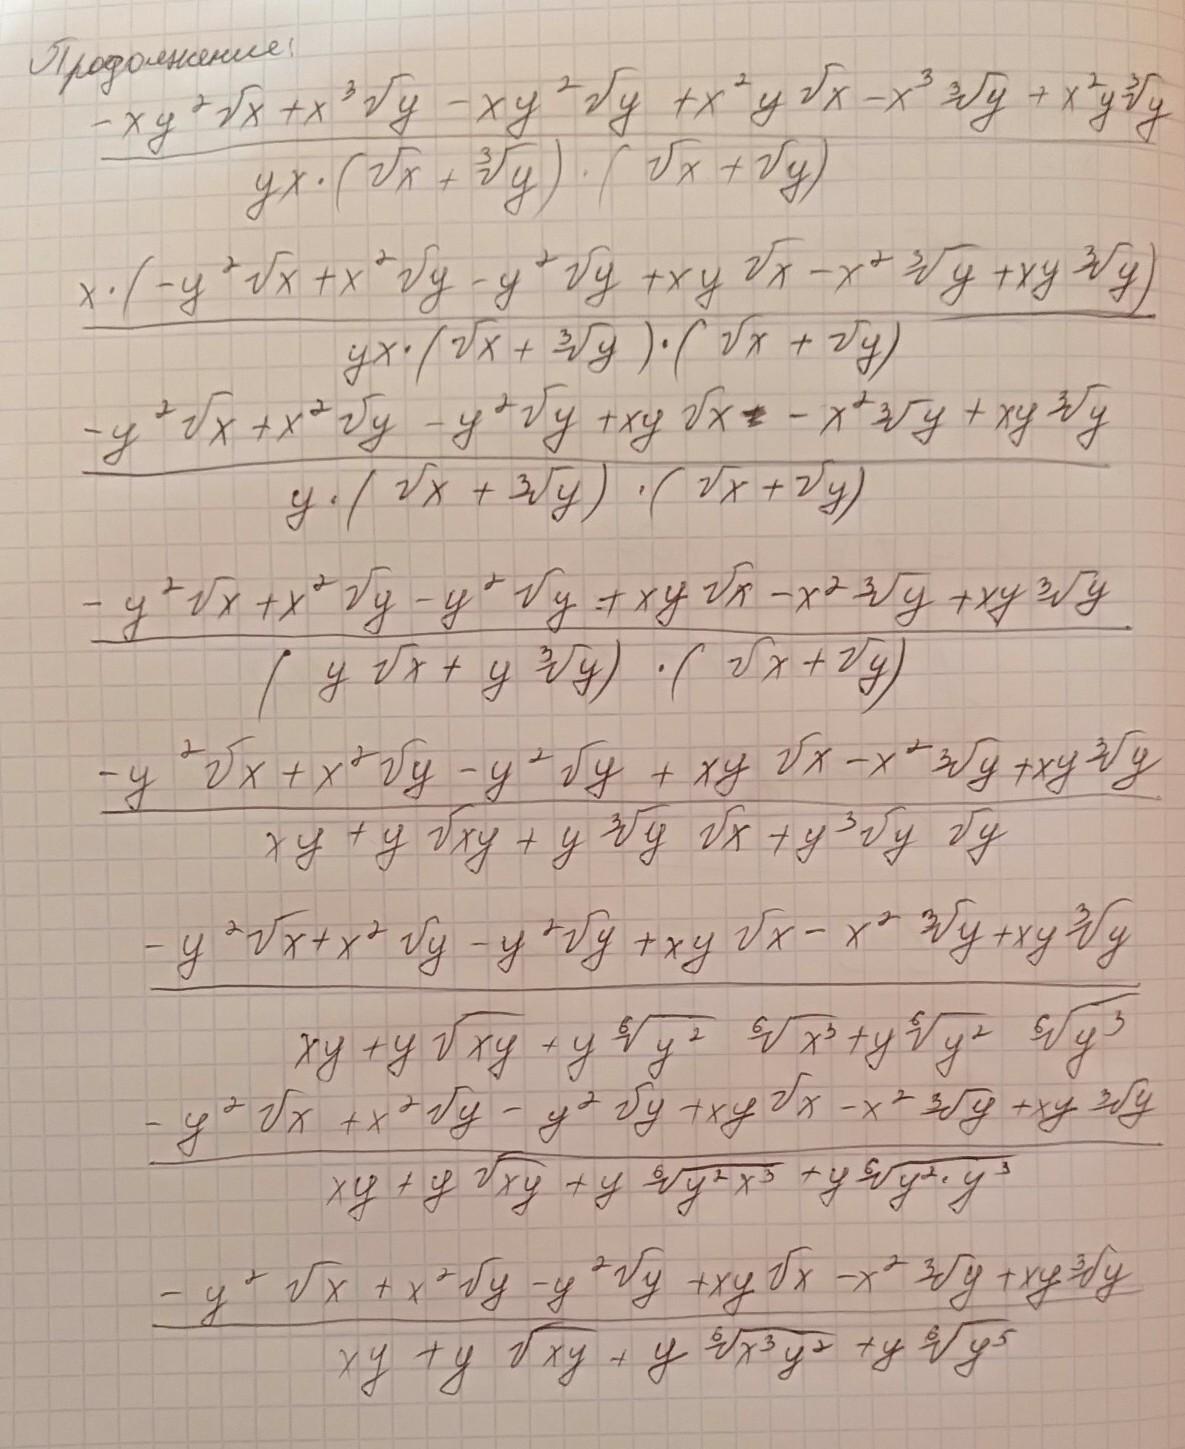 Продолжение:
-xy²√x + x³√y - xy²√y + x²y√x - x³ ∛y + x²y∛y
yx·(√x + ∛y)·(√x + √y)
x·(-y²√x + x²√y - y²√y + xy√x - x² ∛y + xy∛y)
yx·(√x + ∛y)·(√x + √y)
-y²√x + x²√y - y²√y + xy√x - x²∛y + xy∛y
y·(√x + ∛y)·(√x + √y)
-y²√x + x²√y - y²√y + xy√x - x²∛y + xy∛y
(y√x + y∛y)·(√x + √y)
-y²√x + x²√y - y²√y + xy√x - x²∛y + xy∛y
xy + y√xy + y∛y √x + y∛y √y
-y²√x + x²√y - y²√y + xy√x - x² ∛y + xy∛y
xy + y√xy + y ⁶√y² ⁶√x³ + y ⁶√y² ⁶√y³
-y²√x + x²√y - y²√y + xy√x - x²∛y + xy∛y
xy + y√xy + y ⁶√y²x³ + y ⁶√y²·y³
-y²√x + x²√y - y²√y + xy√x - x²∛y + xy∛y
xy + y√xy + y ⁶√x³y² + y ⁶√y⁵